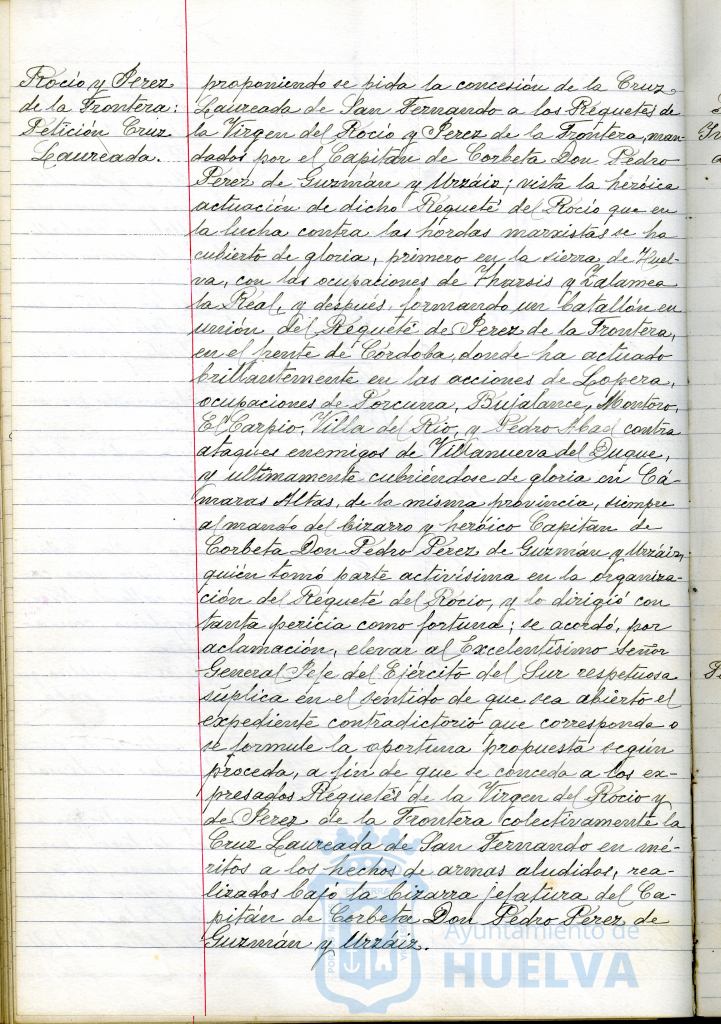 Rocío y Jerez
de la Frontera:
Petición Cruz
Laureada.
proponiendo se pida la concesión de la Cruz
Laureada de San Fernando a los Requetés de
la Virgen del Rocío y Jerez de la Frontera, man-
dados por el Capitán de Corbeta Don Pedro
Pérez de Guzmán y Urzáiz; vista la heróica
actuación de dicho Requeté del Rocío que en
la lucha contra las hordas marxistas se ha
cubierto de gloria, primero en la sierra de Huel-
va, con las ocupaciones de Tharsis y Zalamea
la Real, y después, formando un batallón en
unión del Requeté de Jerez de la Frontera,
en el frente de Córdoba, donde ha actuado
brillantemente en las acciones de Lopera,
ocupaciones de Porcuna, Bujalance, Montoro,
El Carpio, Villa del Río, y Pedro Abad contra
ataques enemigos de Villanueva del Duque,
y ultimamente cubriéndose de gloria en Cá-
maras Altas, de la misma provincia, siempre
al mando del bizarro y heróico Capitan de
Corbeta Don Pedro Pérez de Guzmán y Urzáiz,
quién tomó parte activísima en la organiza-
ción del Requeté del Rocío, y lo dirigió con
tanta pericia como fortuna; se acordó, por
aclamación, elevar al Excelentísimo Señor
General Jefe del Ejército del Sur respetuosa
súplica en el sentido de que sea abierto el
expediente contradictorio que corresponda o
se formule la oportuna propuesta según
proceda, a fin de que se conceda a los ex-
presados Requetés de la Virgen del Rocío y
de Jerez de la Frontera colectivamente la
Cruz Laureada de San Fernando en mé-
ritos a los hechos de armas aludidos, rea-
lizados bajo la bizarra jefatura del Ca-
pitán de Corbeta Don Pedro Pérez de
Guzmán y Urzáiz.
Ayuntamiento de
HUELVA